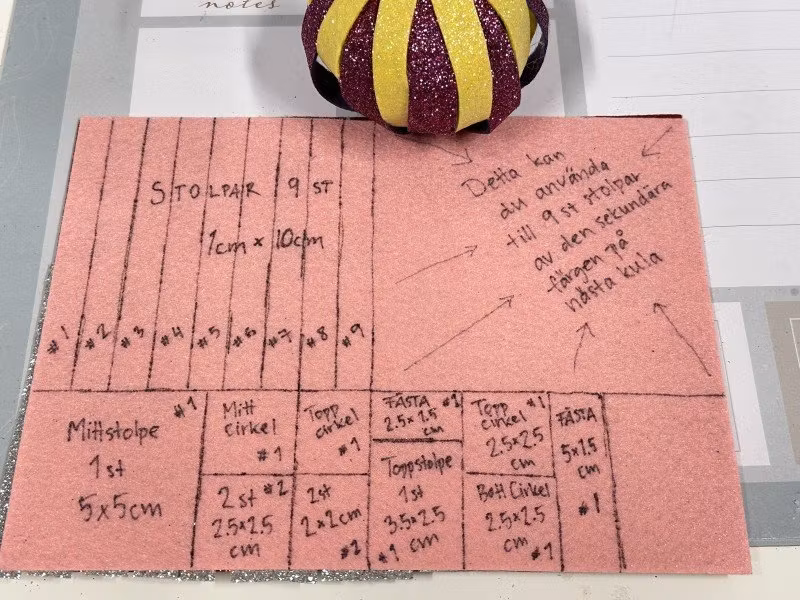 notes
STOLPAR 9 ST
1cm x 10cm
#1 #2 #3 #4 #5 #6 #7 #8 #9
Detta kan
du använda
till 9 st stolpar
av den sekundära
färgen på
nästa kula
Mittstolpe #1
1 st
5x5cm
Mitt
cirkel
#1
2 st #2
2.5x2.5
cm
Topp
cirkel
#1
2st
2x2cm
#2
FÄSTA #1
2.5x1.5
cm
Toppstolpe
1st
3.5x2.5
#1 cm
Topp #1
cirkel
2.5x2.5
cm
Bott Cirkel
2.5x2.5
cm #1
FÄSTA
5x1.5
cm
#1